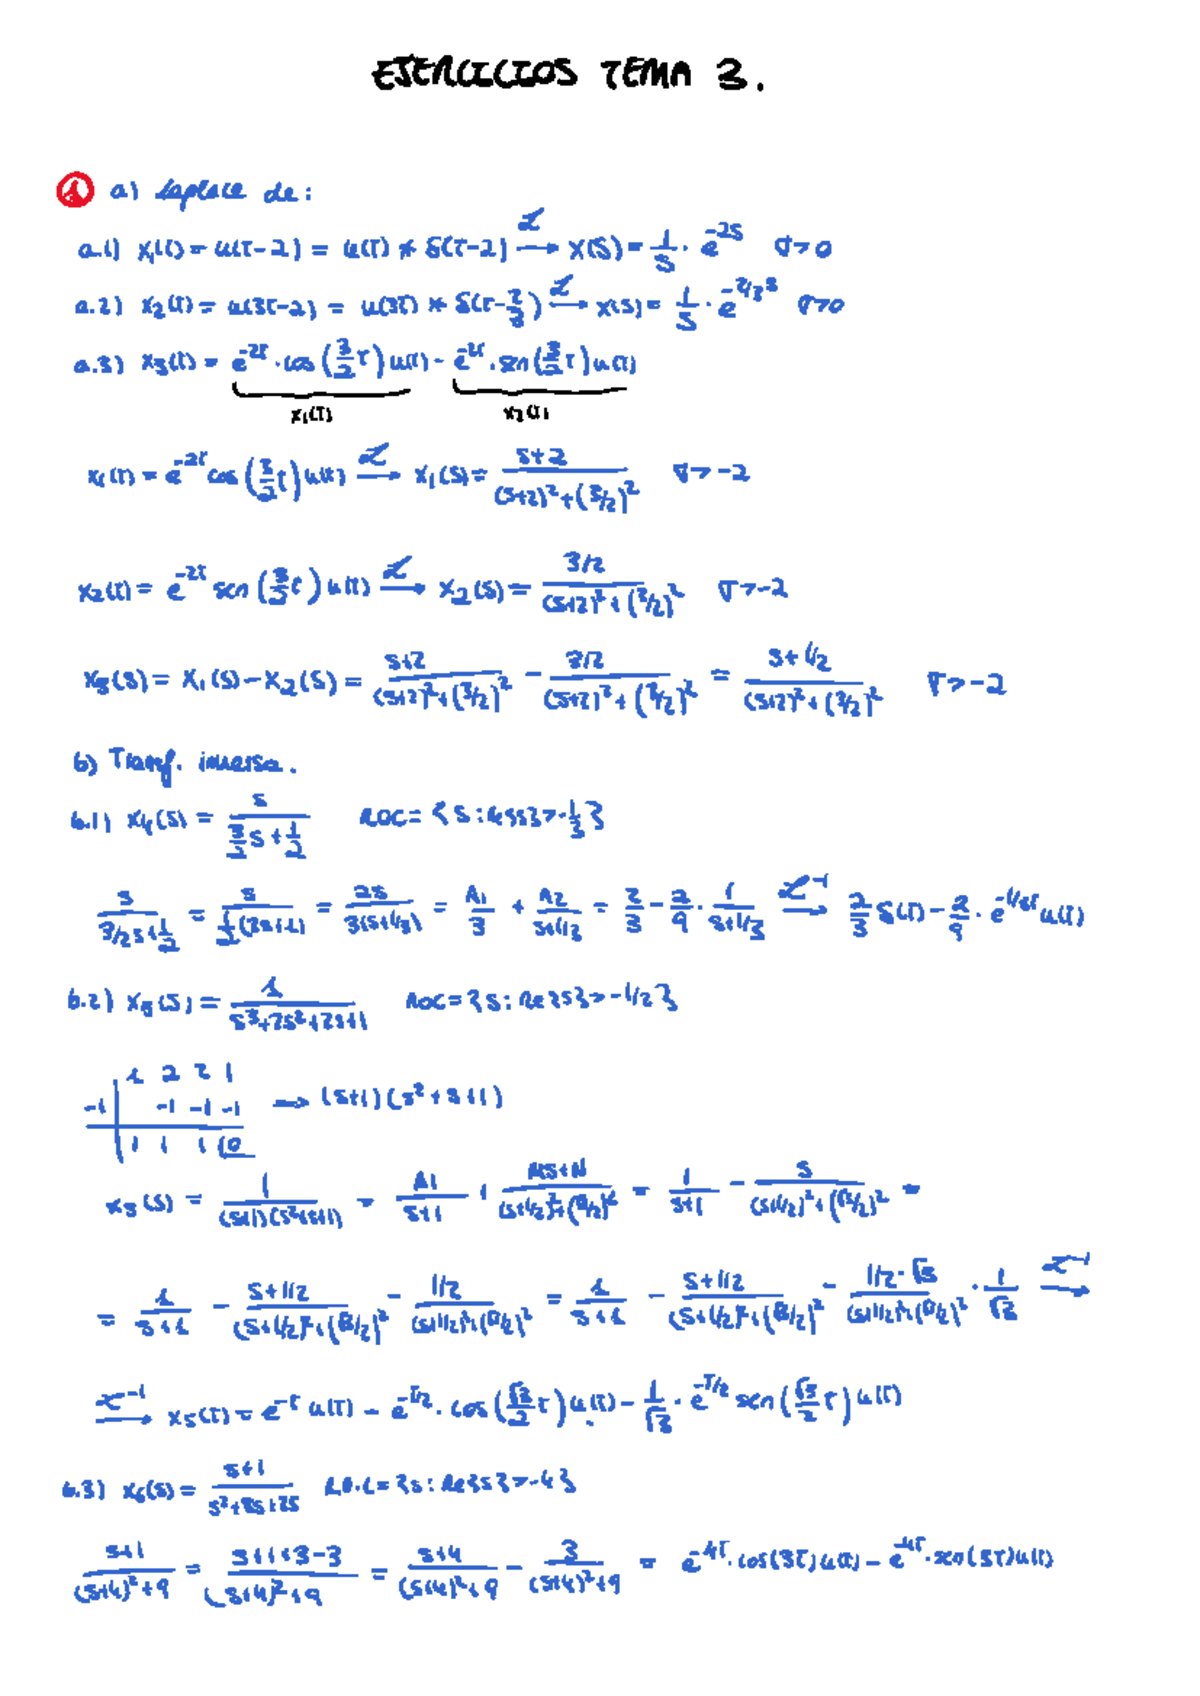 EJERCICIOS TEMA 3.
1 a) Laplace de:
a.1) x₁(t) = u(t-2) = u(t) * δ(t-2) ℒ→ X(s) = 1/s · e^(-2s) σ>0
a.2) x₂(t) = u(3t-2) = u(3t) * δ(t-2/3) ℒ→ X(s) = 1/s · e^(-2/3 s) σ>0
a.3) x₃(t) = e^(-2t) · cos(3/2 t) u(t) - e^(-2t) · sen(3/2 t) u(t)
x₁(t) x₂(t)
x₁(t) = e^(-2t) cos(3/2 t) u(t) ℒ→ X₁(s) = (s+2)/((s+2)²+(3/2)²) σ>-2
x₂(t) = e^(-2t) sen(3/2 t) u(t) ℒ→ X₂(s) = (3/2)/((s+2)²+(3/2)²) σ>-2
X₃(s) = X₁(s) - X₂(s) = (s+2)/((s+2)²+(3/2)²) - (3/2)/((s+2)²+(3/2)²) = (s+1/2)/((s+2)²+(3/2)²) σ>-2
b) Transf. inversa.
b.1) X₄(s) = s/(3/2 s + 1/2) ROC = {s: Re{s}>-1/3}
s/(3/2 s+1/2) = s/(1/2(3s+1)) = 2s/(3(s+1/3)) = A₁/3 + A₂/(s+1/3) = 2/3 - 2/9 · 1/(s+1/3) ℒ⁻¹→ 2/3 δ(t) - 2/9 · e^(-1/3t) u(t)
b.2) X₅(s) = 1/(s³+2s²+2s+1) ROC = {s: Re{s}>-1/2}
1 2 2 1
-1 | -1 -1 -1 → (s+1)(s²+s+1)
1 1 1 |0
X₅(s) = 1/((s+1)(s²+s+1)) = A1/(s+1) + (Ms+N)/((s+1/2)²+(√3/2)²) = 1/(s+1) - s/((s+1/2)²+(√3/2)²) =
= 1/(s+1) - (s+1/2)/((s+1/2)²+(√3/2)²) - (1/2)/((s+1/2)²+(√3/2)²) = 1/(s+1) - (s+1/2)/((s+1/2)²+(√3/2)²) - (1/2·√3)/((s+1/2)²+(√3/2)²) · 1/√3 ℒ⁻¹→
ℒ⁻¹→ x₅(t) = e^(-t) u(t) - e^(-t/2) · cos(√3/2 t) u(t) - 1/√3 · e^(-t/2) sen(√3/2 t) u(t)
b.3) X₆(s) = (s+1)/(s²+8s+25) R.O.C = {s: Re{s}>-4}
(s+1)/((s+4)²+9) = (s+1+3-3)/((s+4)²+9) = (s+4)/((s+4)²+9) - 3/((s+4)²+9) = e^(-4t) · cos(3t) u(t) - e^(-4t) · sen(3t) u(t)